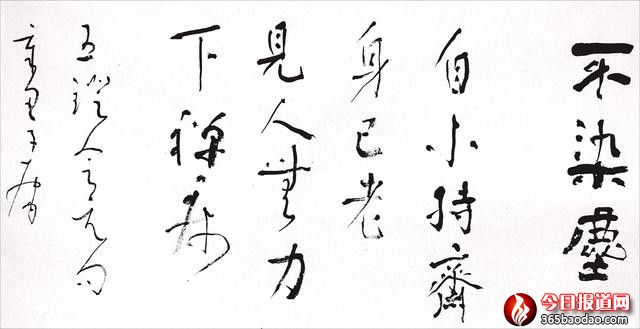 不染塵
自小持齋
身已老
見人無力
下禪床
五鐙會元句
今日报道网
365baodao.com